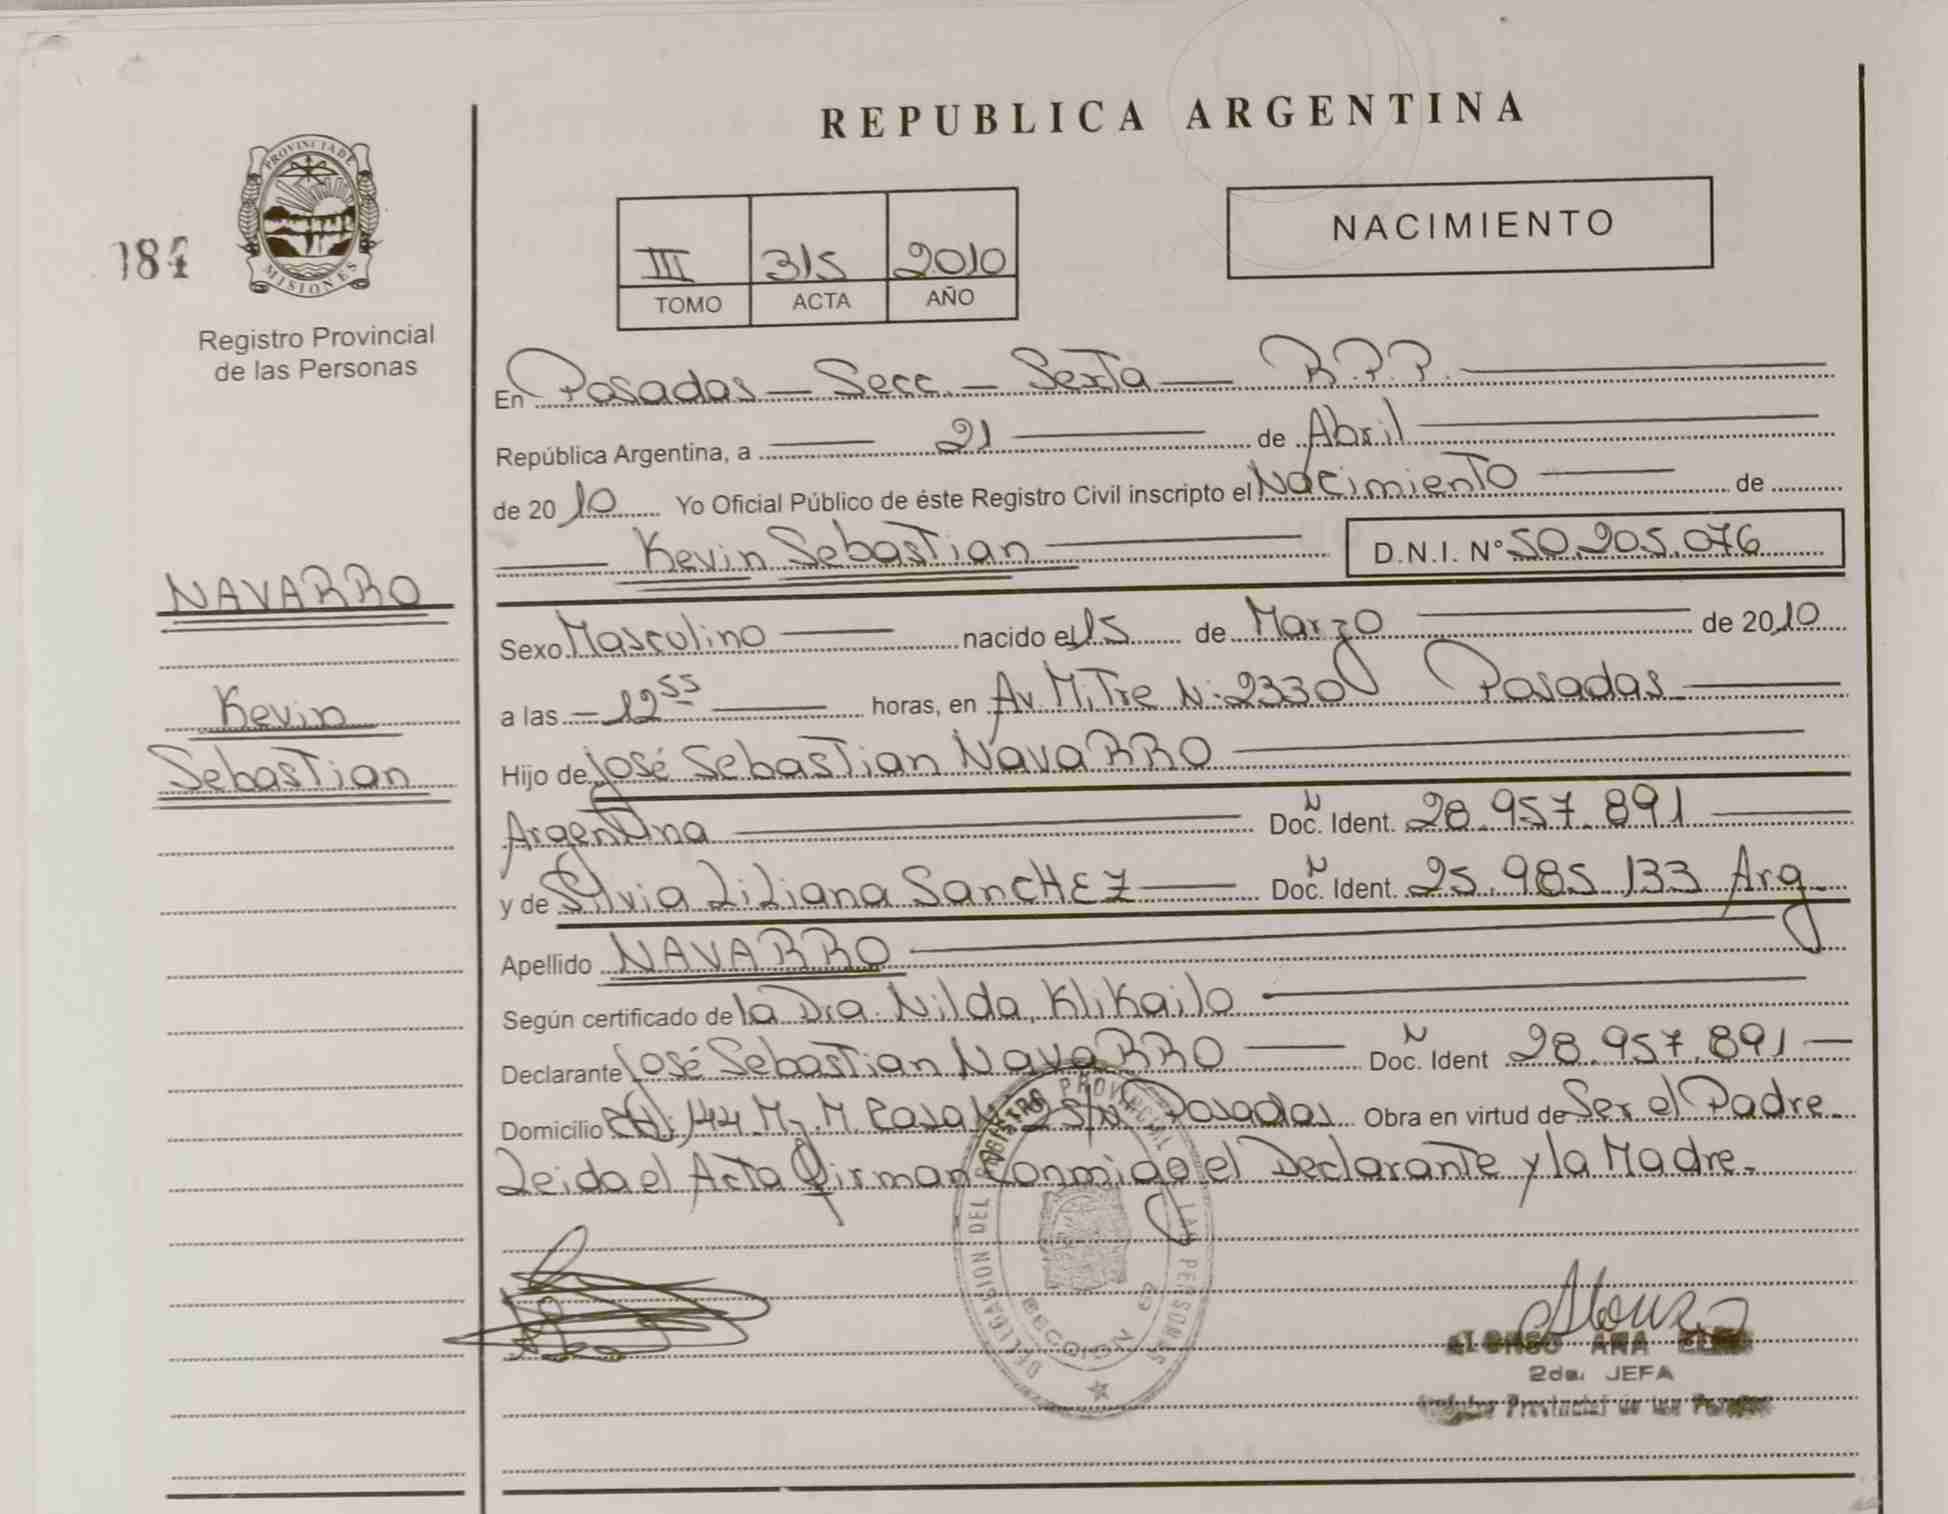 REPUBLICA ARGENTINA
PROVINCIA DE
MISIONES
184
Registro Provincial
de las Personas
III 315 2010
TOMO ACTA AÑO
NACIMIENTO
En Posadas — Secc. — Sexta — R.P.P.
República Argentina, a 21 de Abril
de 2010 Yo Oficial Público de éste Registro Civil inscripto el Nacimiento de
Kevin Sebastian D.N.I. N° 50.205.076
NAVARRO
Kevin
Sebastian
Sexo Masculino nacido el 15 de Marzo de 2010
a las — 12 55 horas, en Av. Mitre N: 2330 Posadas
Hijo de José Sebastian NavaRRO
Argentina Doc. Ident. 28.957.891
y de Silvia Liliana SanCHEZ Doc. Ident. 25.985.133 Arg.
Apellido NAVARRO
Según certificado de la Dra. Nilda, Klikailo
Declarante José Sebastian NavaRRO Doc. Ident 28.957.891 —
Domicilio 144 Casa Posadas Obra en virtud de Ser el Padre.
Leida el Acta Firman Conmigo el Declarante y la Madre.
DELEGACION DEL REGISTRO PROVINCIAL LAS PERSONAS
SECCION 6a
ALONSO ANA
2da. JEFA
Provincial de las Personas